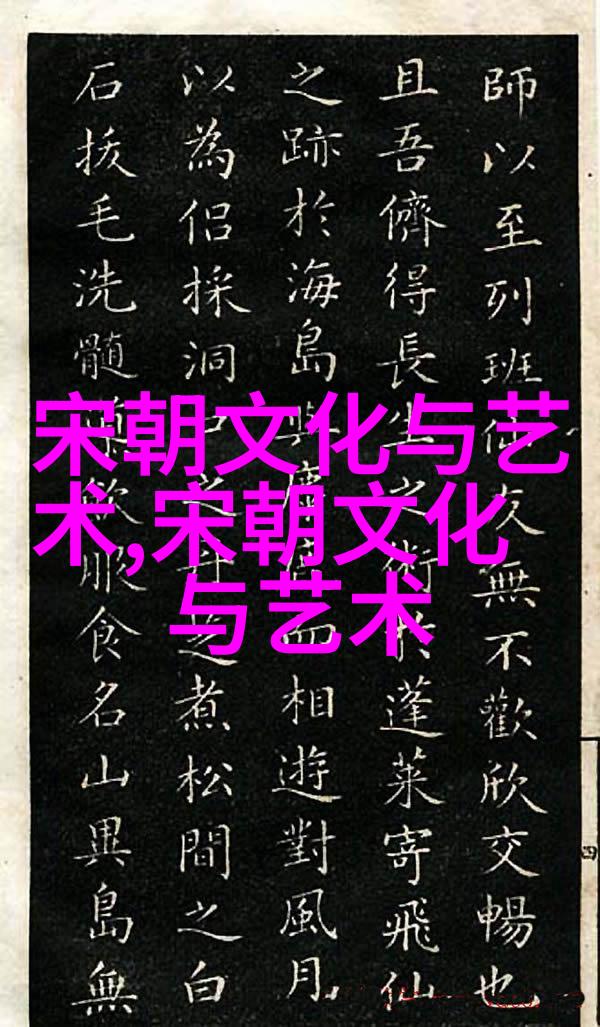 宋朝文化与艺
术,宋朝文化
与艺术
師以至列班友無不歡欣交暢也
且吾儕得長生之術於蓬萊寄飛仙
之跡於海島與而相遊對風月
以為侶採洞之芝煮松間之白
石拔毛洗髓服食名山異島無
四